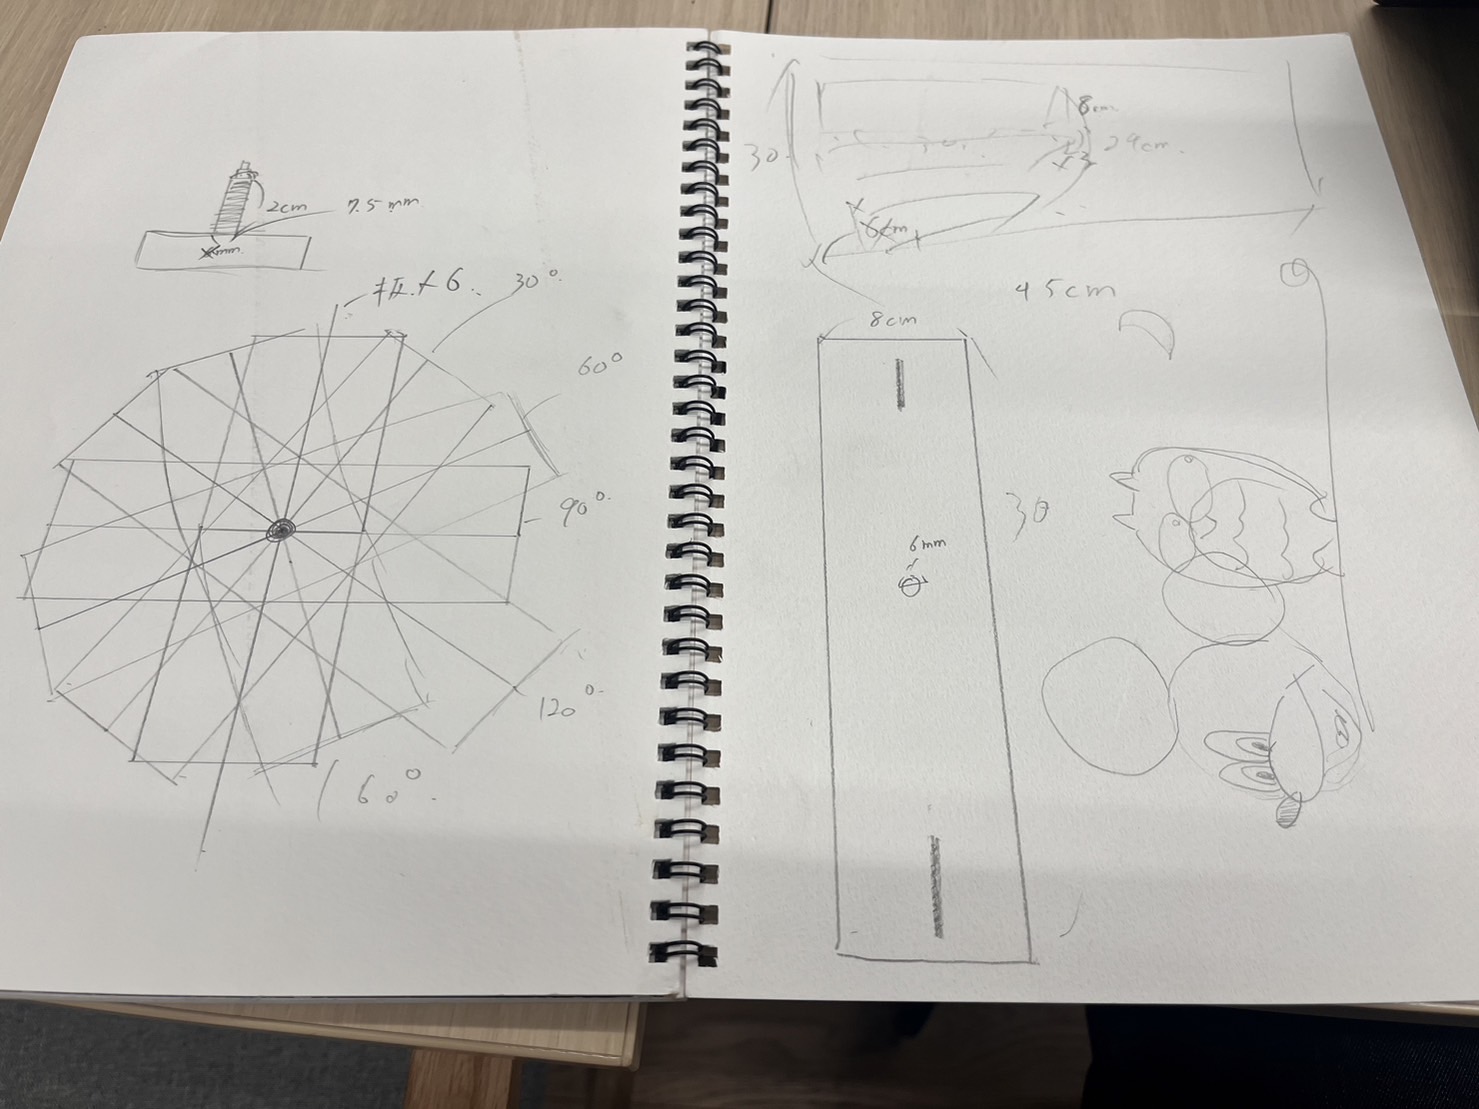 2cm
7.5mm
板×6.
30°.
60°
90°.
120°.
160°.
8cm
30.
29cm.
6cm
45cm
8cm
30
6mm